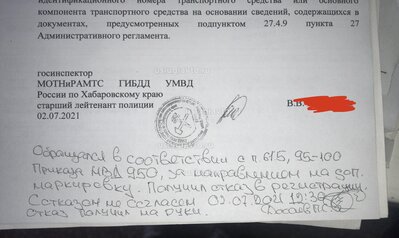 идентификационного номера транспортного средства или основного
компонента транспортного средства на основании сведений, содержащихся в
документах, предусмотренных подпунктом 27.4.9 пункта 27
Административного регламента.
госинспектор
МОТНиРАМТС ГИБДД УМВД
России по Хабаровскому краю
старший лейтенант полиции
02.07.2021
В.В.
Обращался в соответствии с п 675, 95-100
Приказа МВД 950, за направлением на доп.
маркировку. Получил отказ в регистрации.
С отказом не согласен 02.07.2021 12:30
отказ получил на руки.